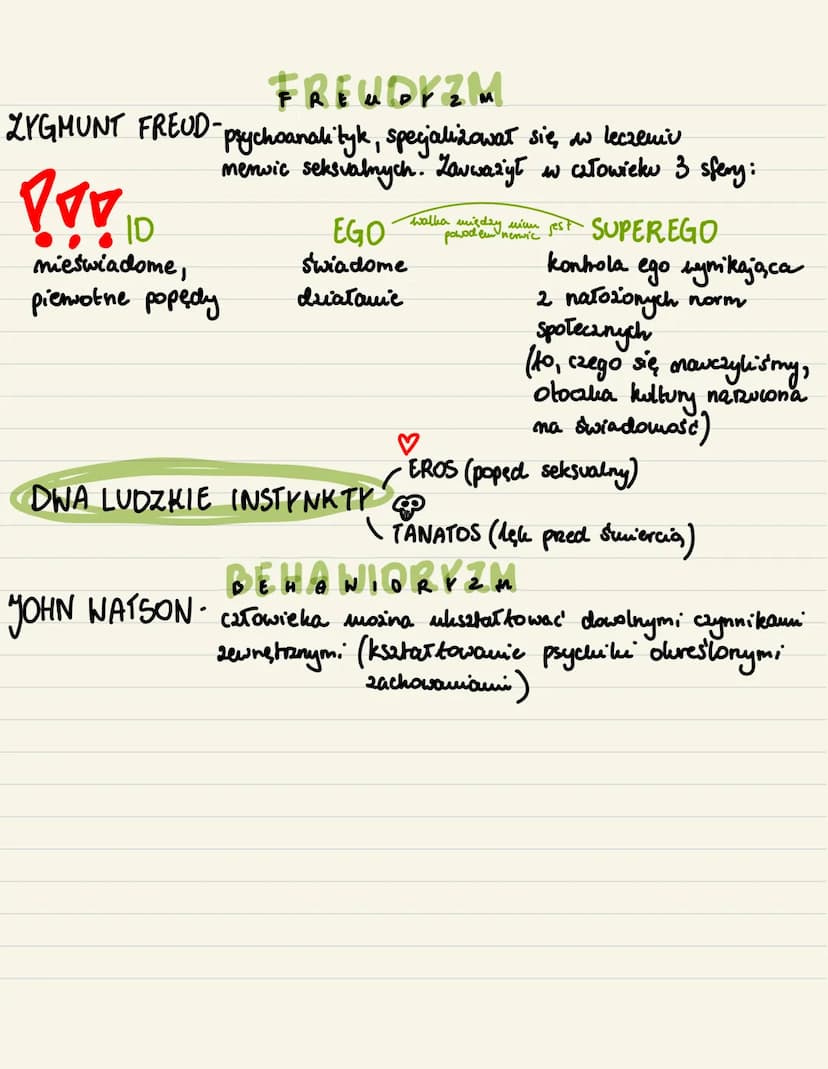 FREUDYZM
ZYGMUNT FREUD- psychoanalityk, specjalizował się w leczeniu
nerwic seksualnych. Zauważył w człowieku 3 sfery:
!!! ID
EGO
walka między nimi jest
powodem nerwic
SUPEREGO
nieświadome,
pierwotne popędy
świadome
działanie
kontrola ego wynikająca
z nałożonych norm
społecznych
(to, czego się nauczyliśmy,
otoczka kultury narzucona
na świadomość)
DWA LUDZKIE INSTYNKTY
EROS (popęd seksualny)
TANATOS (lęk przed śmiercią)
BEHAWIORYZM
JOHN WATSON- człowieka można ukształtować dowolnymi czynnikami
zewnętrznymi (kształtowanie psychiki określonymi
zachowaniami)